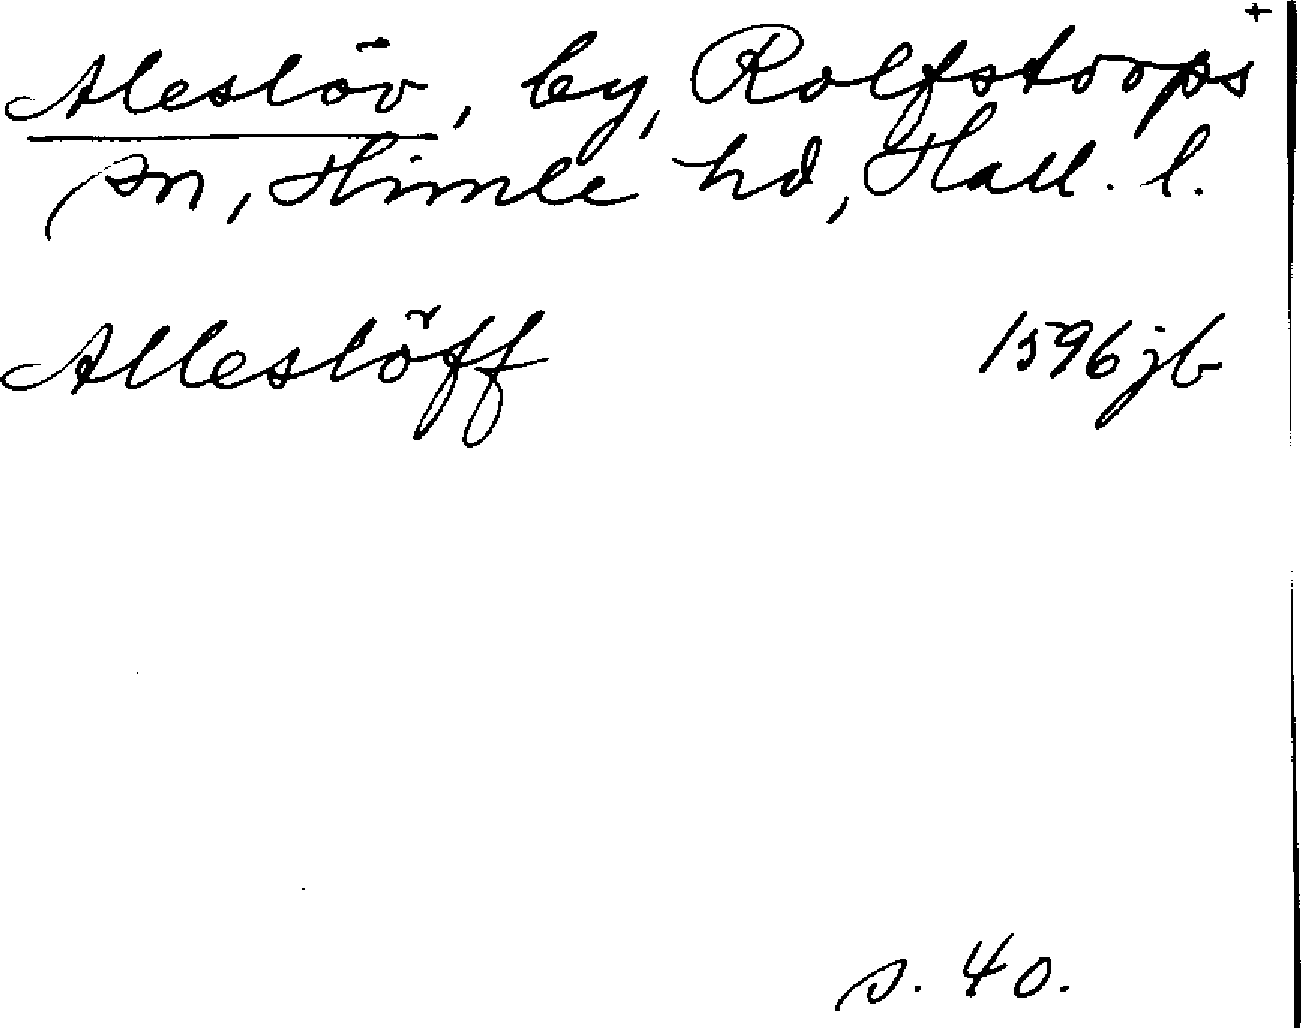 +
Aleslöv, by, Rolfstorps
sn, Himle hd, Hall. l.
Alleslöff 1596 jb
s. 40.